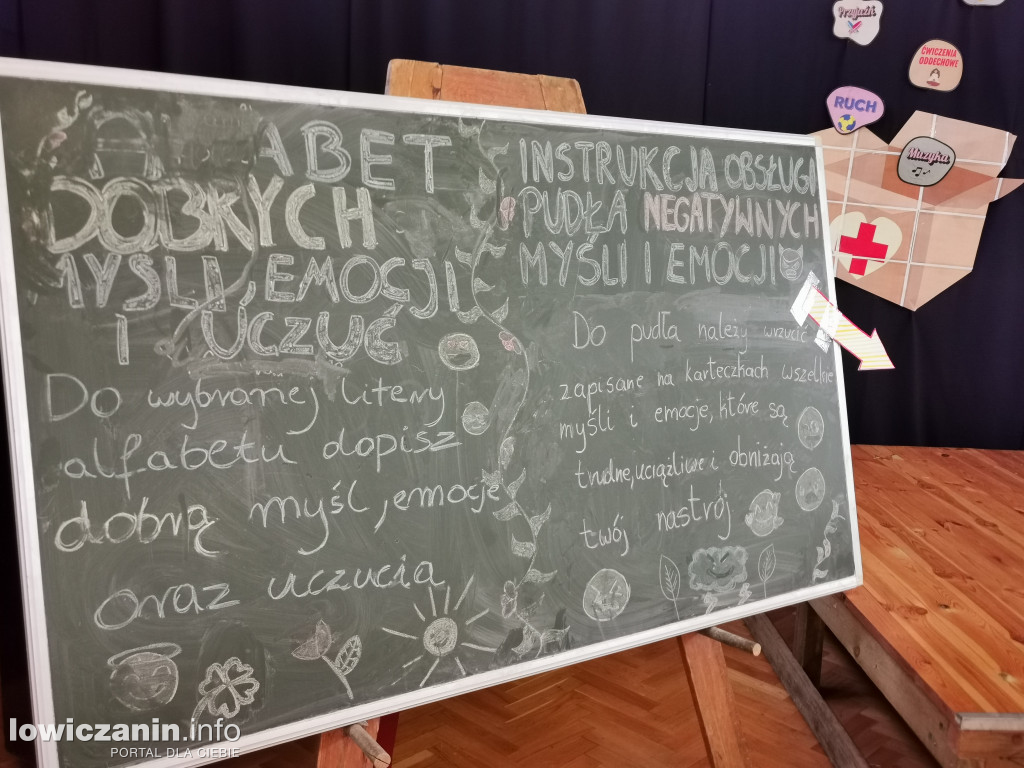 ABET
DOBRYCH
MYŚLI, EMOCJI
I UCZUĆ
Do wybranej litery
alfabetu dopisz
dobrą myśl, emocje
oraz uczucia
INSTRUKCJA OBSŁUGI
PUDŁA NEGATYWNYCH
MYŚLI I EMOCJI
Do pudła należy wrzucić
zapisane na karteczkach wszelkie
myśli i emocje, które są
trudne, uciążliwe i obniżają
twój nastrój
Przyjaźń
ĆWICZENIA
ODDECHOWE
RUCH
Muzyka
lowiczanin.info
PORTAL DLA CIEBIE